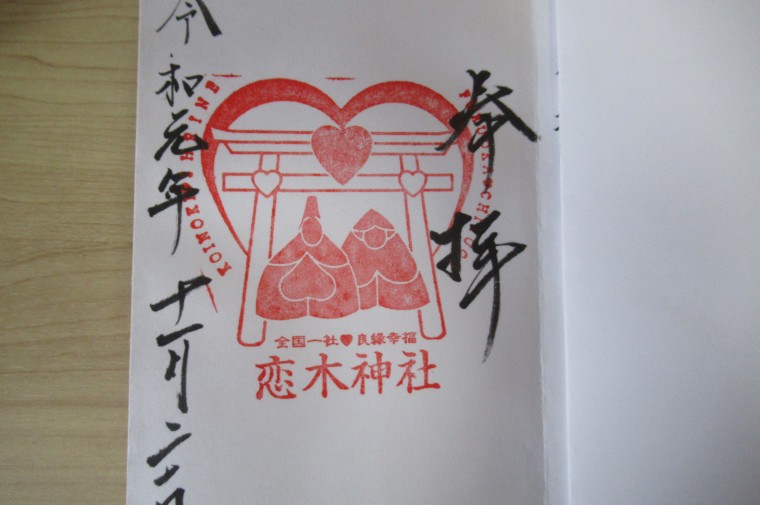 奉拝
KOINOKI SHRINE
全国一社♥良縁幸福
恋木神社
令和元年十一月二日